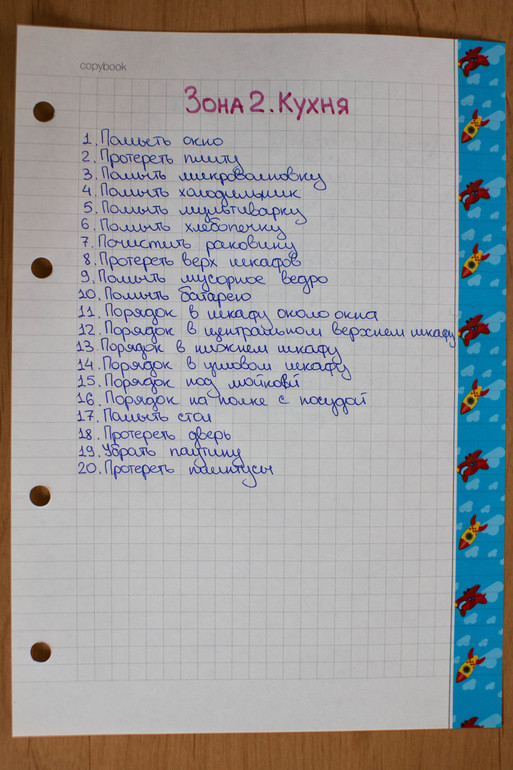 copybook
Зона 2. Кухня
1. Помыть окно
2. Протереть плиту
3. Помыть микроволновку
4. Помыть холодильник
5. Помыть мультиварку
6. Помыть хлебопечку
7. Почистить раковину
8. Протереть верх шкафов
9. Помыть мусорное ведро
10. Помыть батарею
11. Порядок в шкафу около окна
12. Порядок в центральном верхнем шкафу
13 Порядок в нижнем шкафу
14. Порядок в угловом шкафу
15. Порядок под мойкой
16. Порядок на полке с посудой
17. Помыть стол
18. Протереть дверь
19. Убрать паутину
20. Протереть плинтусы